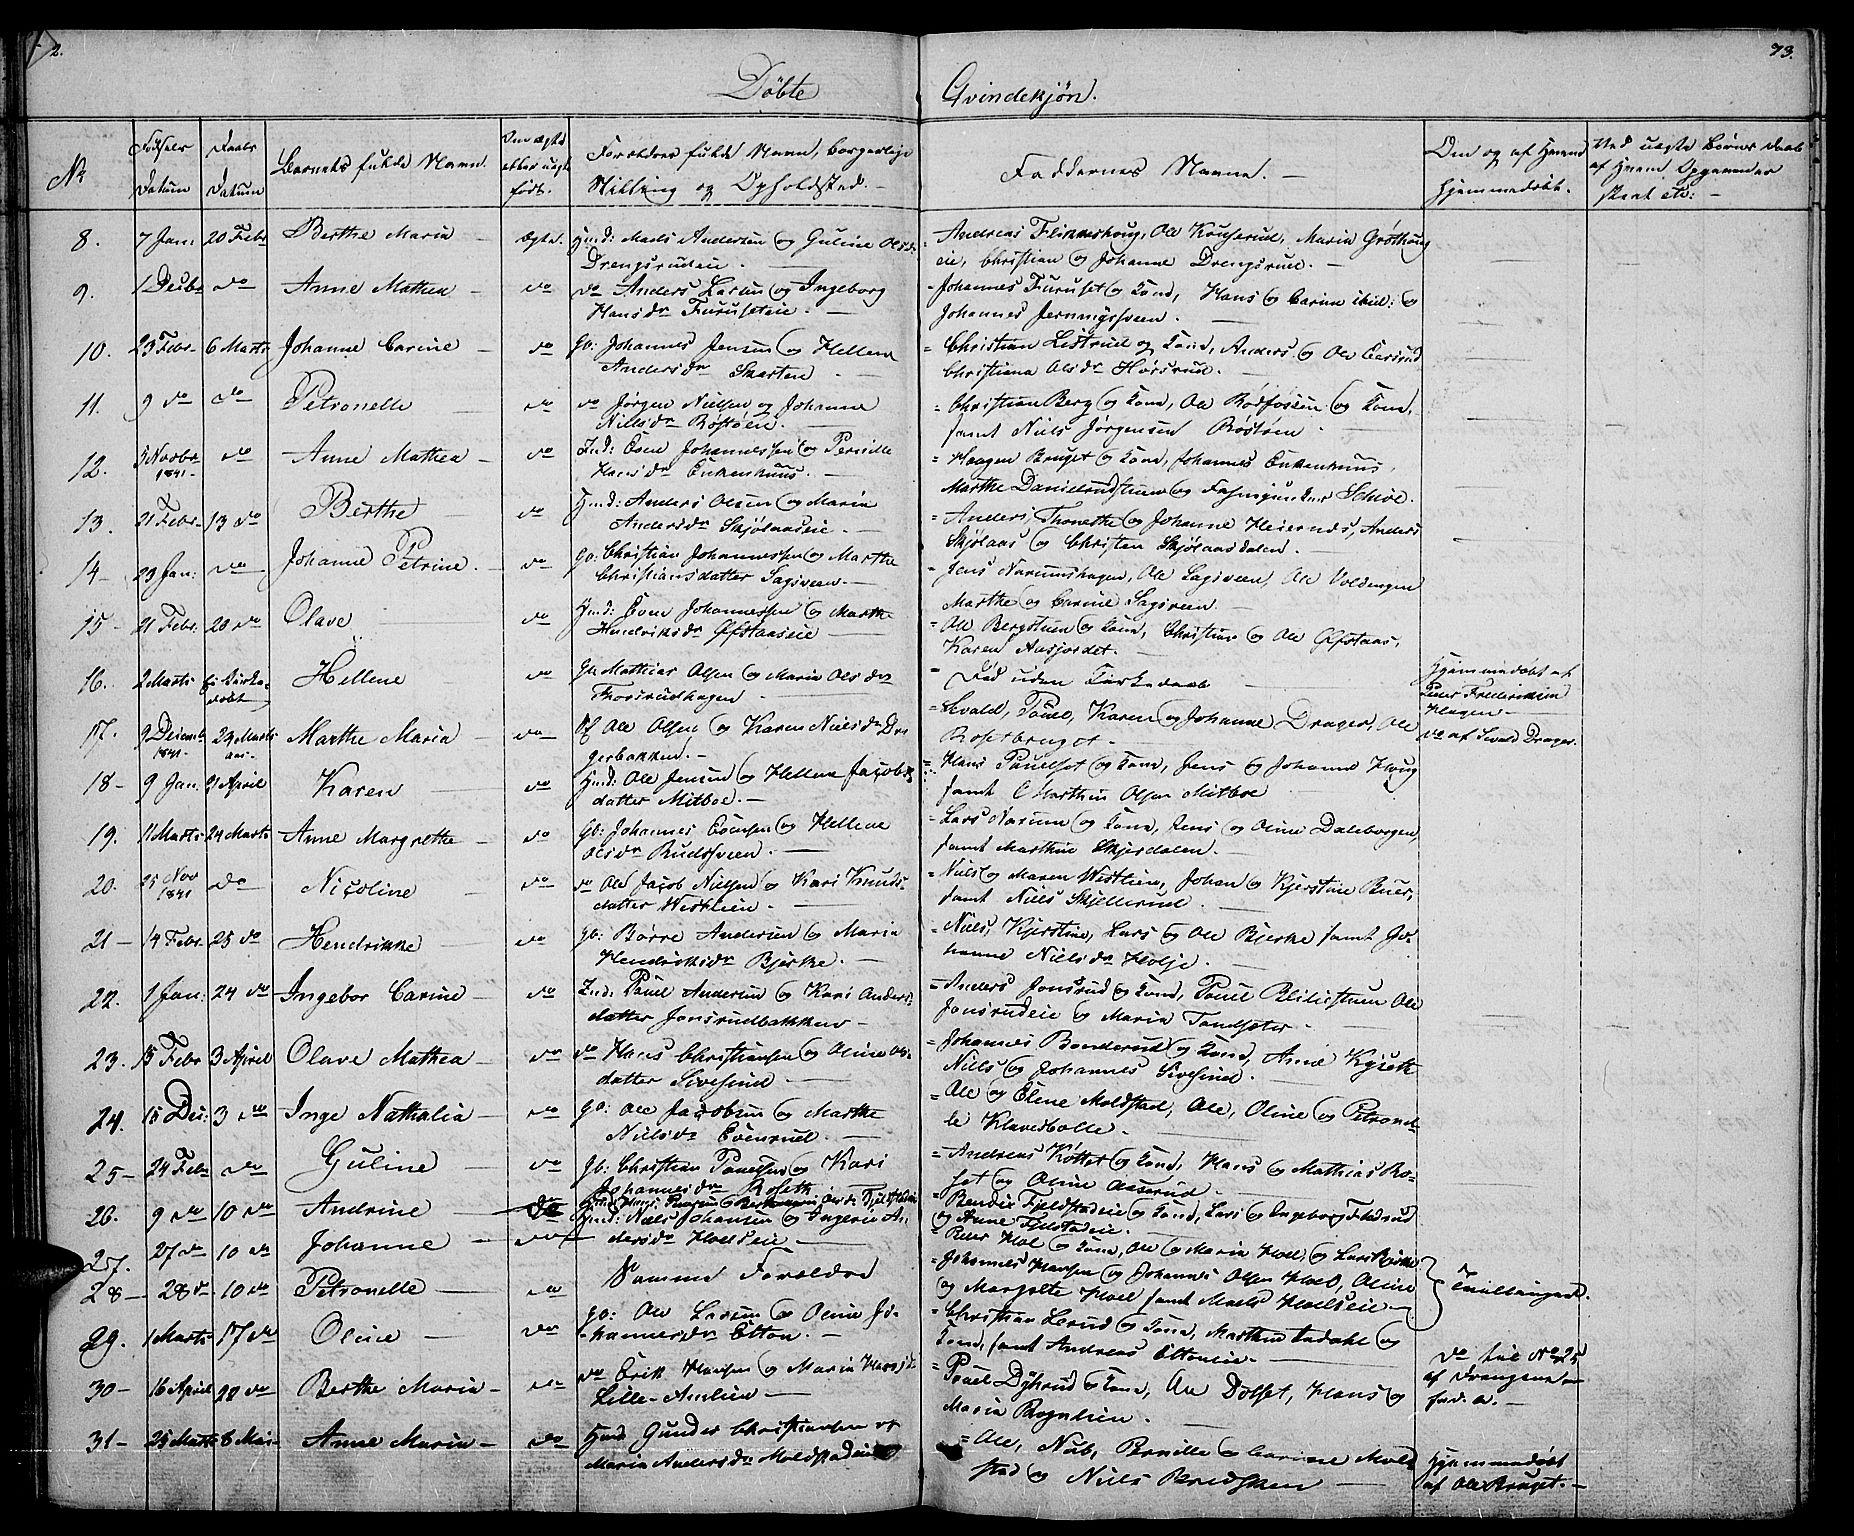 2.
73.
Döbte Qvindekjön.
No
Fødsels Datum
Daabs Datum
Barnets fulde Navn.
Om ægte eller uægte født.
Forældres fulde Navn, borgerlige
Stilling og Opholdsted.
Faddernes Navne.
Om og af Hvem
Hjemmedøbt.
Ved uægte Børns Daab
af Hvem Opgivelser
skeet etc:
8. 7 Jan: 20 Febr Berthe Maria ægte. Huusd: Mads Andersen og Guline Olsdr
Drengsrudeie.
Andreas Flinneshoug, Ole Kouserud, Maria Grøthoug
eie, Christian og Johanne Drengsrud.
9. 1 Decbr do Anne Mathea do do Anders Larsen og Ingeborg
Hansdr Furuseteie.
Johannes Furuset og Kone, Hans og Carine ibid: og
Johannes Jernmyrsveen.
10. 23 Febr 6 Marts Johanne Carine do Gb: Johannes Jensen og Hellene
Andersdr Skarten
Christian Listrud og Kone, Anders og Ole
Christiana Olsdr Horsrud.
11. 9 do do Petronelle do do Jørgen Nielsen og Johanne
Nielsdr Røstøen.
Christian Berg og Kone, Ole Rødfossen og Kone,
samt Niels Jørgensen Røstøen.
12. 5 Novbr 1841 do Anne Mathea do Ind: Even Johannessen og Pernille
Hansdr Enkenhuus.
Haagen Bruget og Kone, Johannes Enkenhuus,
Marthe Danielrudstuen og Schiøe.
13. 21 Febr 13 do Berthe do Huusd: Anders Olsen og Maria
Andersdr Skjølaaseie.
Anders, Thonethe og Johanne Heiernes, Anders
Skjølaas og Christen Skjølaasdalen.
14 23 Jan: do Johanne Petrine. do Gb: Christian Johannessen og Marthe
Christiansdatter Sagsveen.
Jens Narumshagen, Ole Sagsveen, Ole Voldengen
Marthe og Carine Sagsveen.
15 21 Febr. 20 do Olave do Huusd: Even Johannessen og Marthe
Hendriksdr Ofstaaseie
Ole Bergstuen og Kone, Christian og Ole Ofstaas,
Karen Aasjordet.
16. 2 Marts Hellene do Gb. Mathias Olsen og Maria Olsdr
Thorsrudhagen
Død uden Kirkedaab
Hjemmedøbt af
Peder Frederiksen
Hagen
17. 9 Decemb 1841. 24 Marts Marthe Maria do Ole Olsen og Karen Nielsdr Dra
gerbakken.
Sevald, Poul, Karen og Johanne Drager, Ole
Rosetbruget
do af Sevald Drager.
18 9 Jan: 21 April Karen do Huusd: Ole Jensen og Hellene Jacobs
datter Mitboe.
Hans Poulset og Kone, Jens og Johanne Houg
samt Marthin Olsen Mitboe
19. 11 Marts 24 Marts Anne Margrethe do Gb: Johannes Evensen og Hellene
Olsdr Rudsveen.
Lars Narum og Kone, Jens og Oline Daleborgen,
samt Marthin Skjerdalen.
20. 25 Nov 1841 do Nicoline do do Ole Jacob Nielsen og Kari Knuds-
datter Westlien.
Niels og Maren Westlien, Johan og Kjerstine Buer,
samt Niels Skjellerud.
21 14 Febr. 25 do Hendrikke do Gb: Børre Andersen og Maria
Hendriksdr Bjerke.
Niels, Kjerstine, Lars og Ole Bjerke samt Jo-
hanne Nielsdr Holje.
22. 1 Jan: 24 do Ingebor Carine do Ind: Poul Andersen og Kari Anders
datter Jonsrudbakken
Anders Jonsrud og Kone, Poul Blilistuen Ole
Jonsrudeie og Maria Tandsæter.
23. 15 Febr 3 April Olave Mathea do do Hans Christiansen og Oline Ols-
datter Sivesind.
Johannes Bonderud og Kone, Anne Kyseth
Niels og Johannes Sivesind.
24. 15 Dec: 3 do Inge Nathalia do Gb: Ole Jacobsen og Marthe
Nielsdr Evensrud.
Ole og Eline Moldstad, Ole, Oline og Petronel-
le Klavedbolle.
25 24 Febr do Guline do Gb: Christian Poulsen og Kari
Johannesdr Roseth.
Andreas Køttet og Kone, Hans og Mathias Ro-
set og Oline Aaserud.
26. 9 do 10 do Andrine Olsdr Fjeldstadeie
Bendix Fjeldstadeie og Kone, Lars og Ingeborg Fladsrud
og Anne Fjelstadeie.
27. 27 do 10 do Johanne do Huusd: Niels Johansen og Ingerie An-
dersdr Hoelseie
Peder Hoel og Kone, Ole og Maria Hoel, og Lars Bjerke
28 28 do 10 do Petronelle do Samme Forældre
Johannes Hansen og Johannes Olsen Hoel, Oline
og Margrethe Hoel samt Mads Hoelseie
Tvillinger.
29. 1 Marts 17 do Oline do Gb: Ole Larsen og Oline Jo-
hannesdr Elton.
Christian Lerud og Kone, Marthin Indahl og
Kone, samt Andreas Eltoneie
30 16 April 22 do Berthe Maria do do Erik Hansen og Maria Hansdr
Lille-Amlien
Poul Dyhrud og Kone, Ole Dolset, Hans og
Maria Rognlien.
do til No 25
af
31 25 Marts 8 Mai Anne Maria do Huusd Gunder Christiansen og
Maria Andersdr Moldstadeie
Ole, Nub, Pernille og Carine Mold
stad og Niels Bredskeen
Hjemmedøbt
af Ole Bruget.